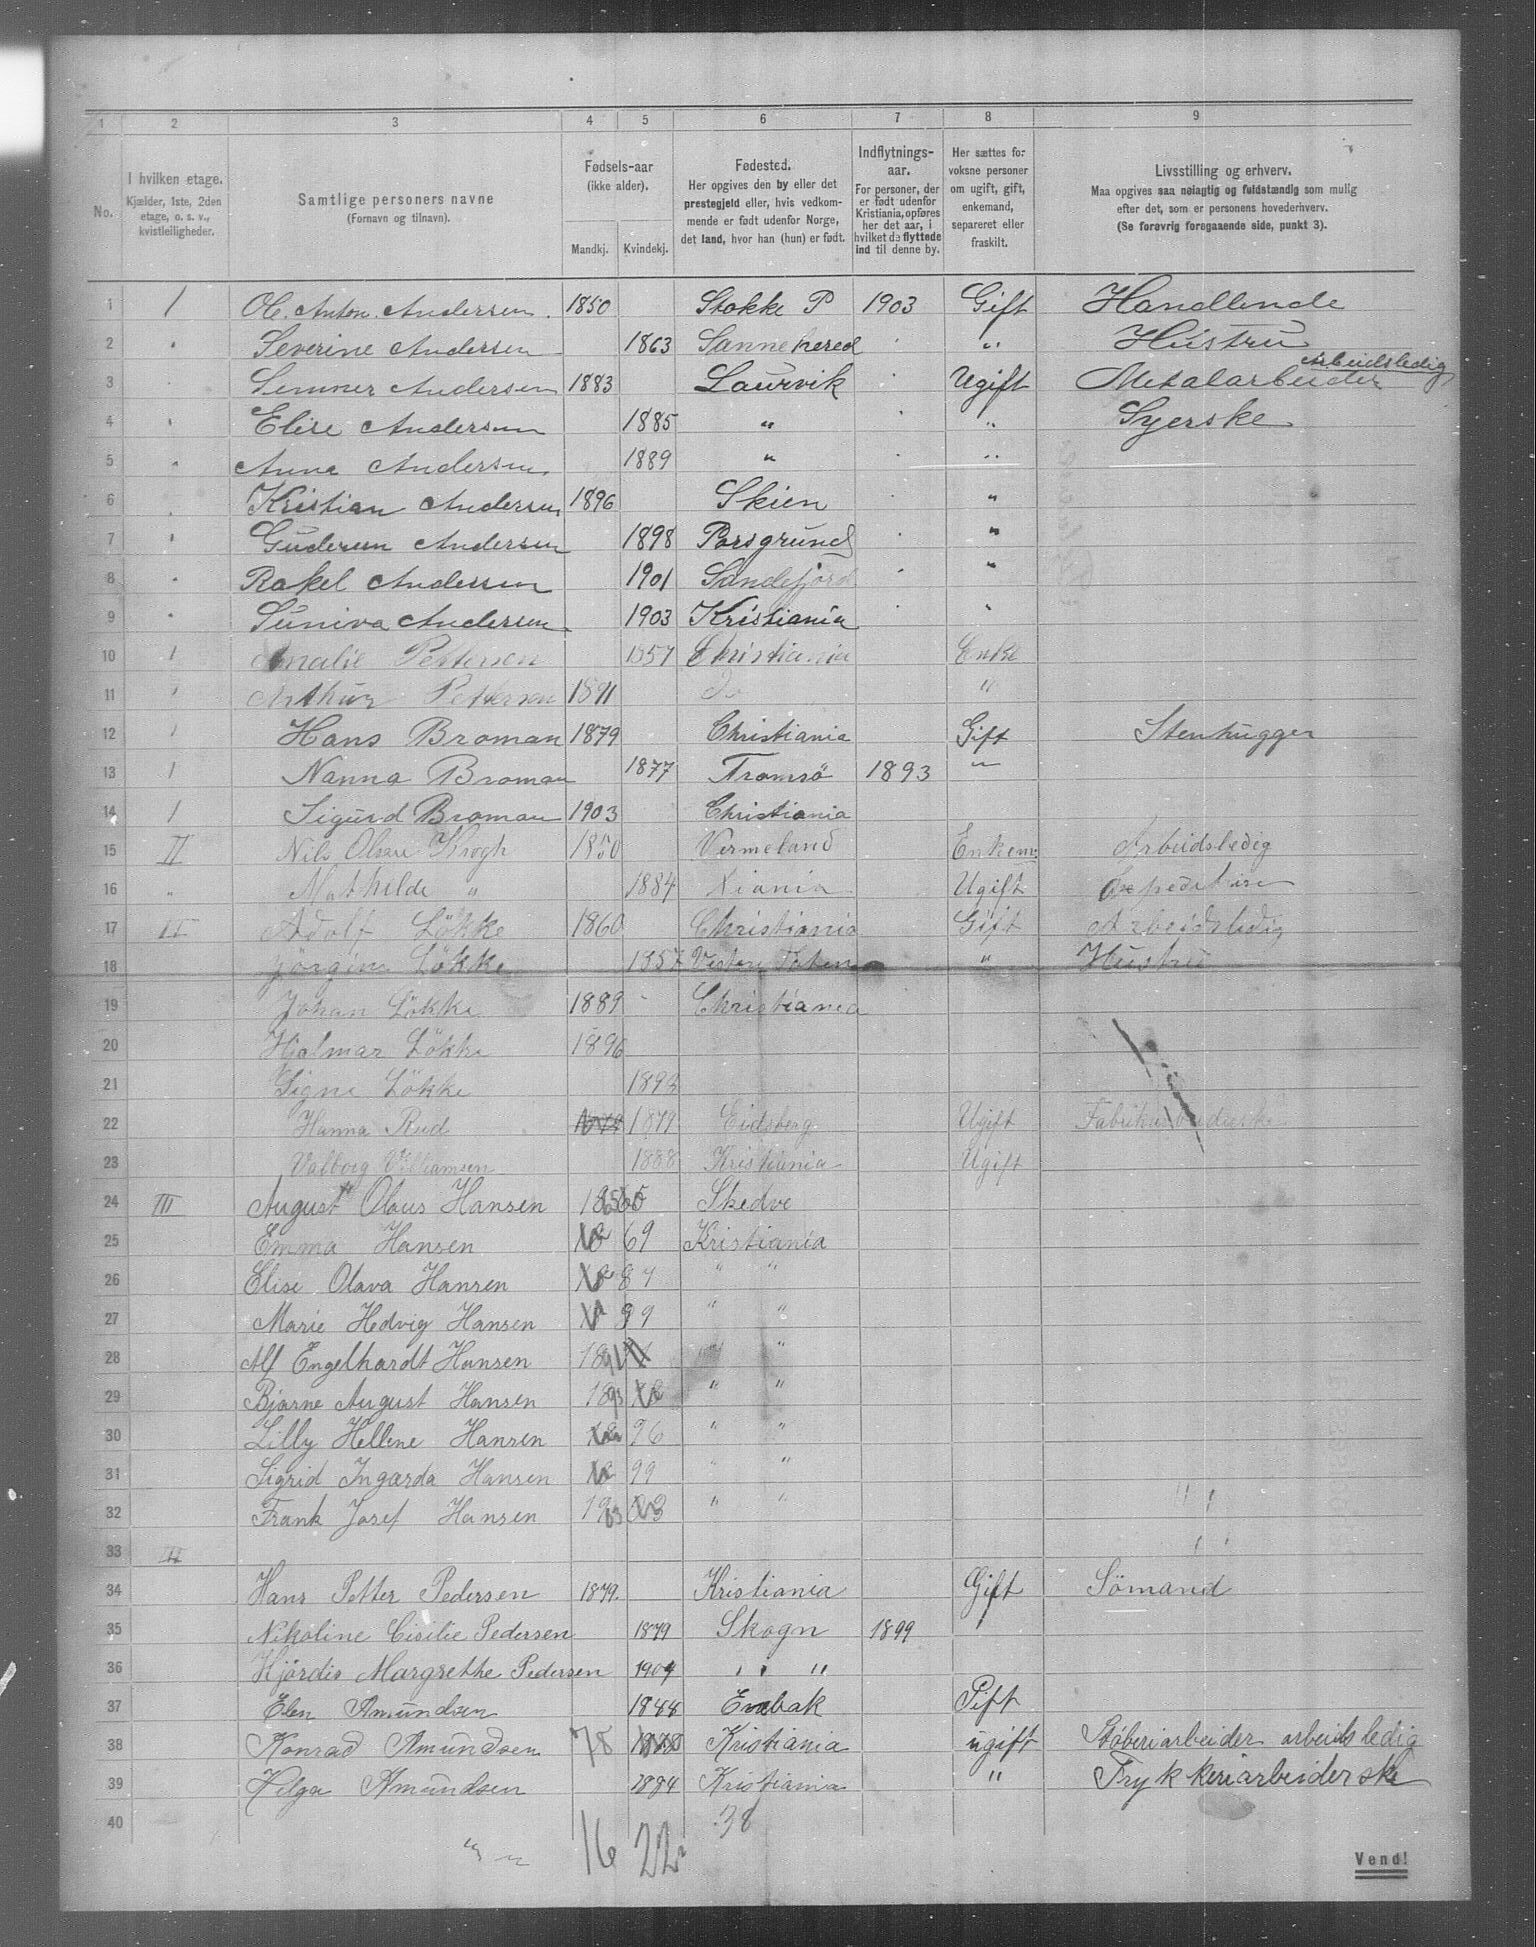 1 2 3 4 5 6 7 8 9
No.
I hvilken etage.
Kjælder, 1ste, 2den
etage, o. s. v.,
kvistleiligheder.
Samtlige personers navne
(Fornavn og tilnavn).
Fødsels-aar
(ikke alder).
Mandkj. Kvindekj.
Fødested.
Her opgives den by eller det
prestegjeld eller, hvis vedkom-
mende er født udenfor Norge,
det land, hvor han (hun) er født.
Indflytnings-
aar.
For personer, der
er født udenfor
Kristiania, opføres
her det aar, i
hvilket de flyttede
ind til denne by.
Her sættes for
voksne personer
om ugift, gift,
enkemand,
separeret eller
fraskilt.
Livsstilling og erhverv.
Maa opgives saa nøiagtig og fuldstændig som mulig
efter det, som er personens hovederhverv.
(Se forøvrig foregaaende side, punkt 3).
1 1 Ole Anton Andersen 1850 Stokke P 1903 Gift Handlende
2 " Severine Andersen 1863 Sannehered " " Hustru
3 " Semmer Andersen 1883 Laurvik " Ugift Metalarbeider arbeidsledig
4 " Elise Andersen 1885 " " " Syerske
5 " Anna Andersen 1889 " " "
6 " Kristian Andersen 1896 Skien " "
7 " Guderun Andersen 1898 Porsgrund " "
8 " Rakel Andersen 1901 Sandefjord " "
9 " Suniva Andersen 1903 Kristiania " "
10 1 Amalie Pettersen 1857 Christiania Enke
11 " Arthur Pettersen 1891 Do "
12 1 Hans Broman 1879 Christiania Gift Stenhugger
13 1 Nanna Broman 1877 Tromsö 1893 "
14 1 Sigurd Broman 1903 Christiania
15 II Nils Olsen Krogh 1850 Vermeland Enkem. Arbeidsledig
16 " Mathilde " 1884 Xiania Ugift
17 II Adolf Lökke 1860 Christiania Gift Arbeidsledig
18 Jörgine Lökke 1857 Vestre Toten " Hustru
19 Johan Lökke 1889 Christiania
20 Hjalmar Lökke 1896
21 Signe Lökke 1893
22 Hanna Rud 1879 Eidsberg Ugift Fabrikarbeiderske
23 Valborg Villiamsen 1888 Kristiania Ugift
24 III August Olaus Hansen 1865 Skedve
25 Emma Hansen 18 69 Kristiania
26 Elise Olava Hansen 18 87 " "
27 Marie Hedvig Hansen 18 99 " "
28 Alf Engelhardt Hansen 1891 " "
29 Bjarne August Hansen 1893 " "
30 Lilly Hellene Hansen 18 96 " "
31 Sigrid Ingarda Hansen 18 99 " "
32 Frank Josef Hansen 1903 " "
33 III
34 Hans Petter Pedersen 1879. Kristiania Gift Sömand
35 Nikoline Cisilie Pedersen 1879 Skogn 1899 "
36 Hjördis Margrethe Pedersen 1904 " " "
37 Elen Amundsen 1844 Enebak Gift
38 Konrad Amundsen 78 Kristiania ugift Støberiarbeider arbeidsledig
39 Helga Amundsen 1884 Kristiania " Trykkeriarbeiderske
40 38
16 22
Vend!